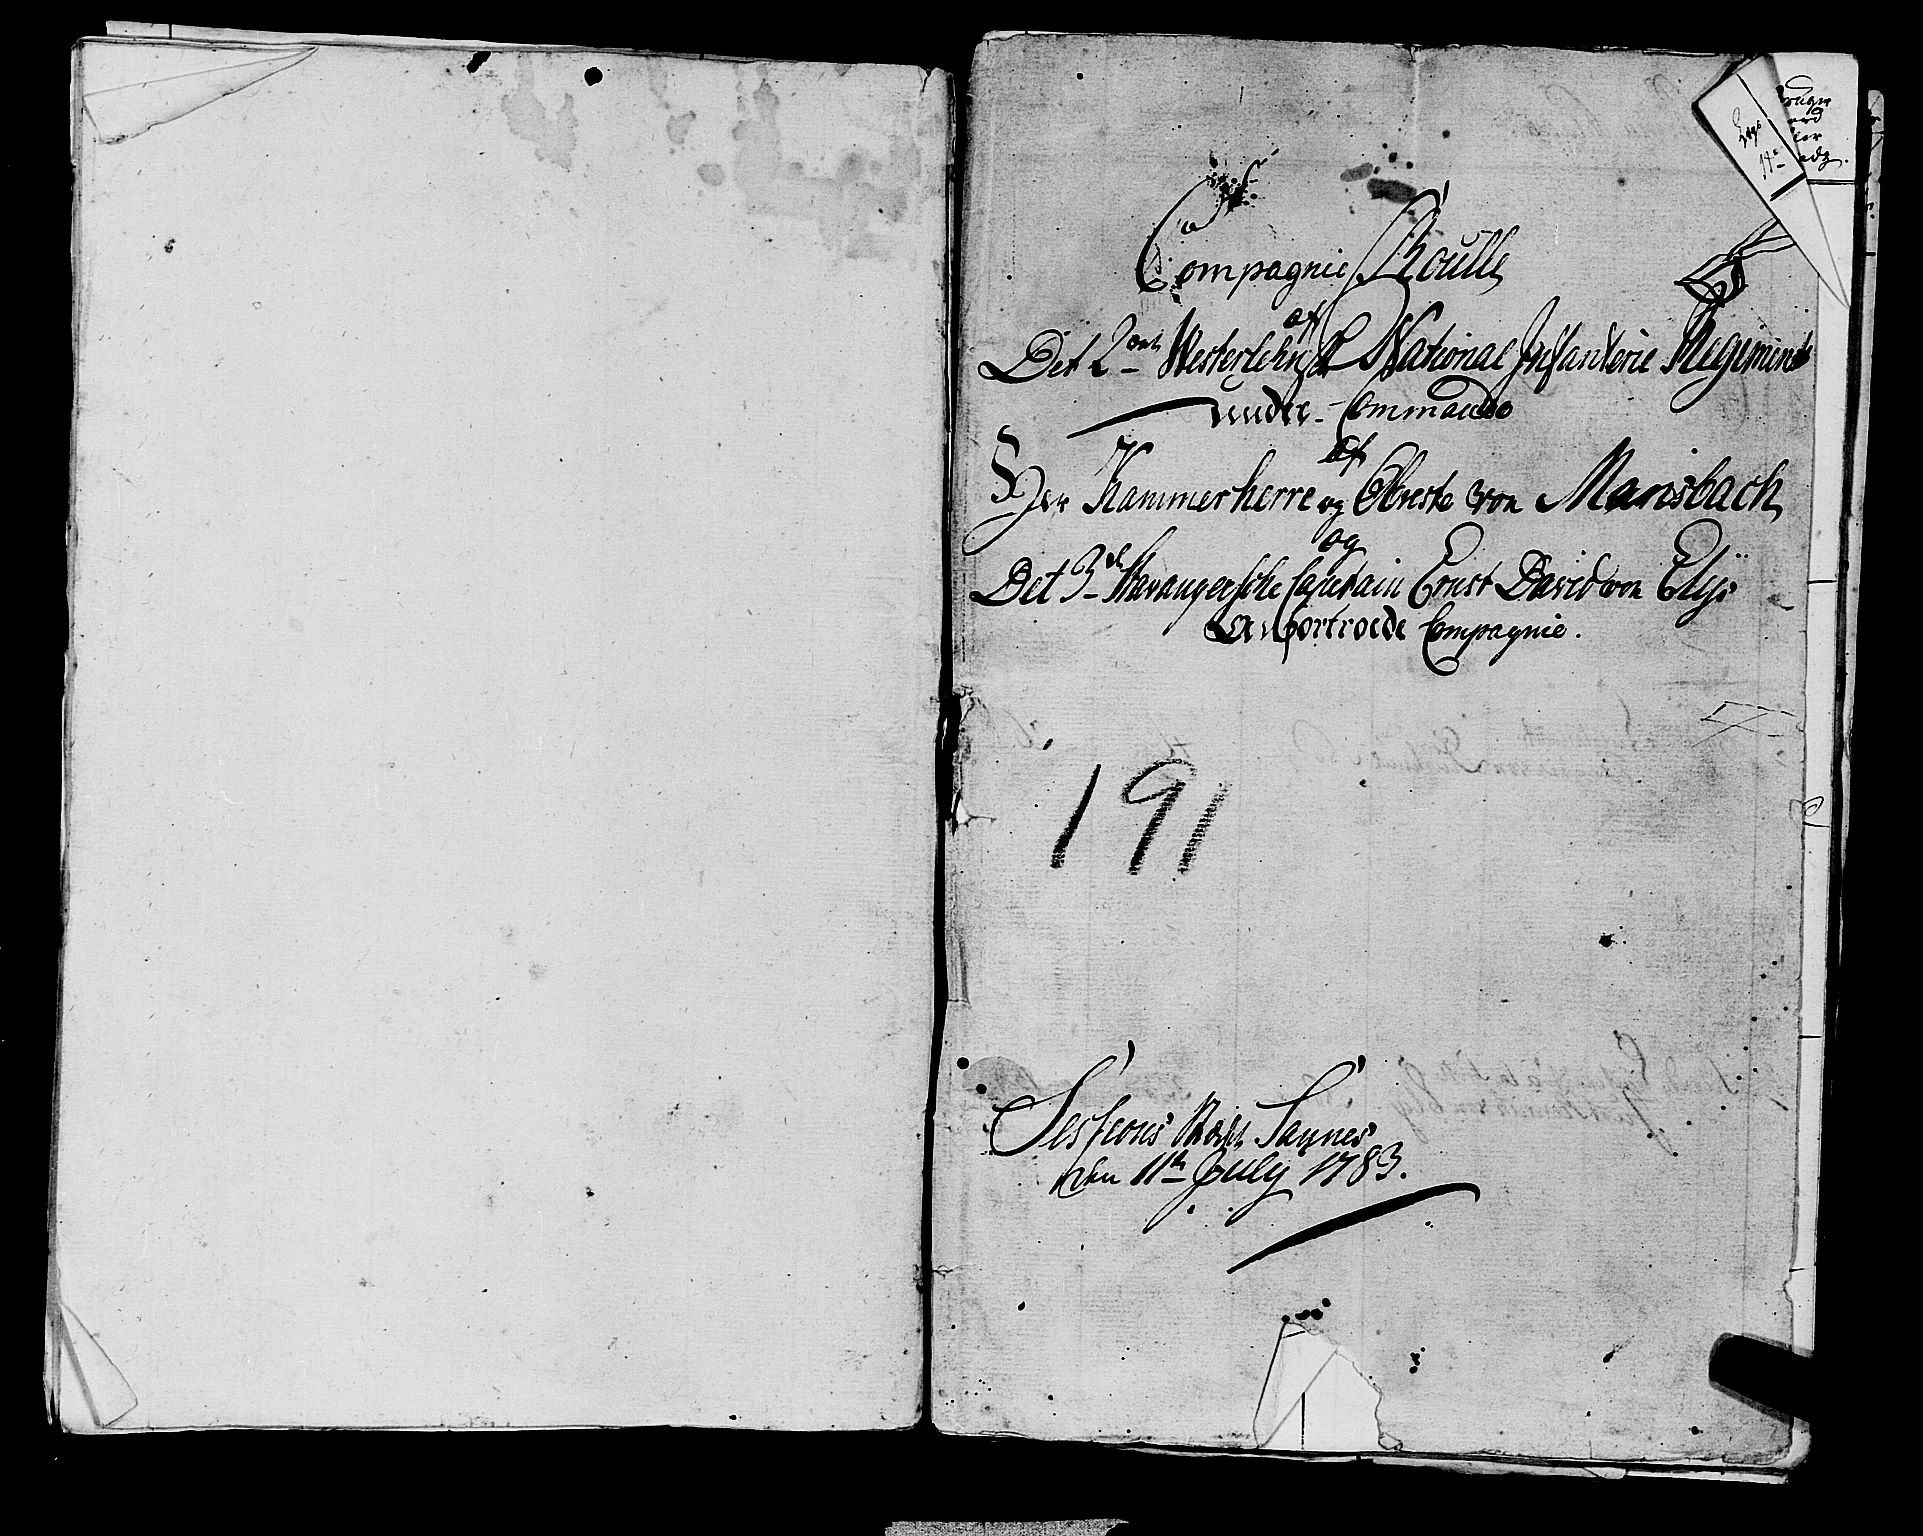 Compagnie Roulle
af
Det 2det Westerlehnske National Infanterie Regiment
under Commando
af
Hr Kammerherre og Obreste von Mansbach
og
Det 3de Stavangerske Capitain Ernst David von Elÿs
Anfortroede Compagnie.
191
Sessions Stædet Saugnes
den 11te July 1783.